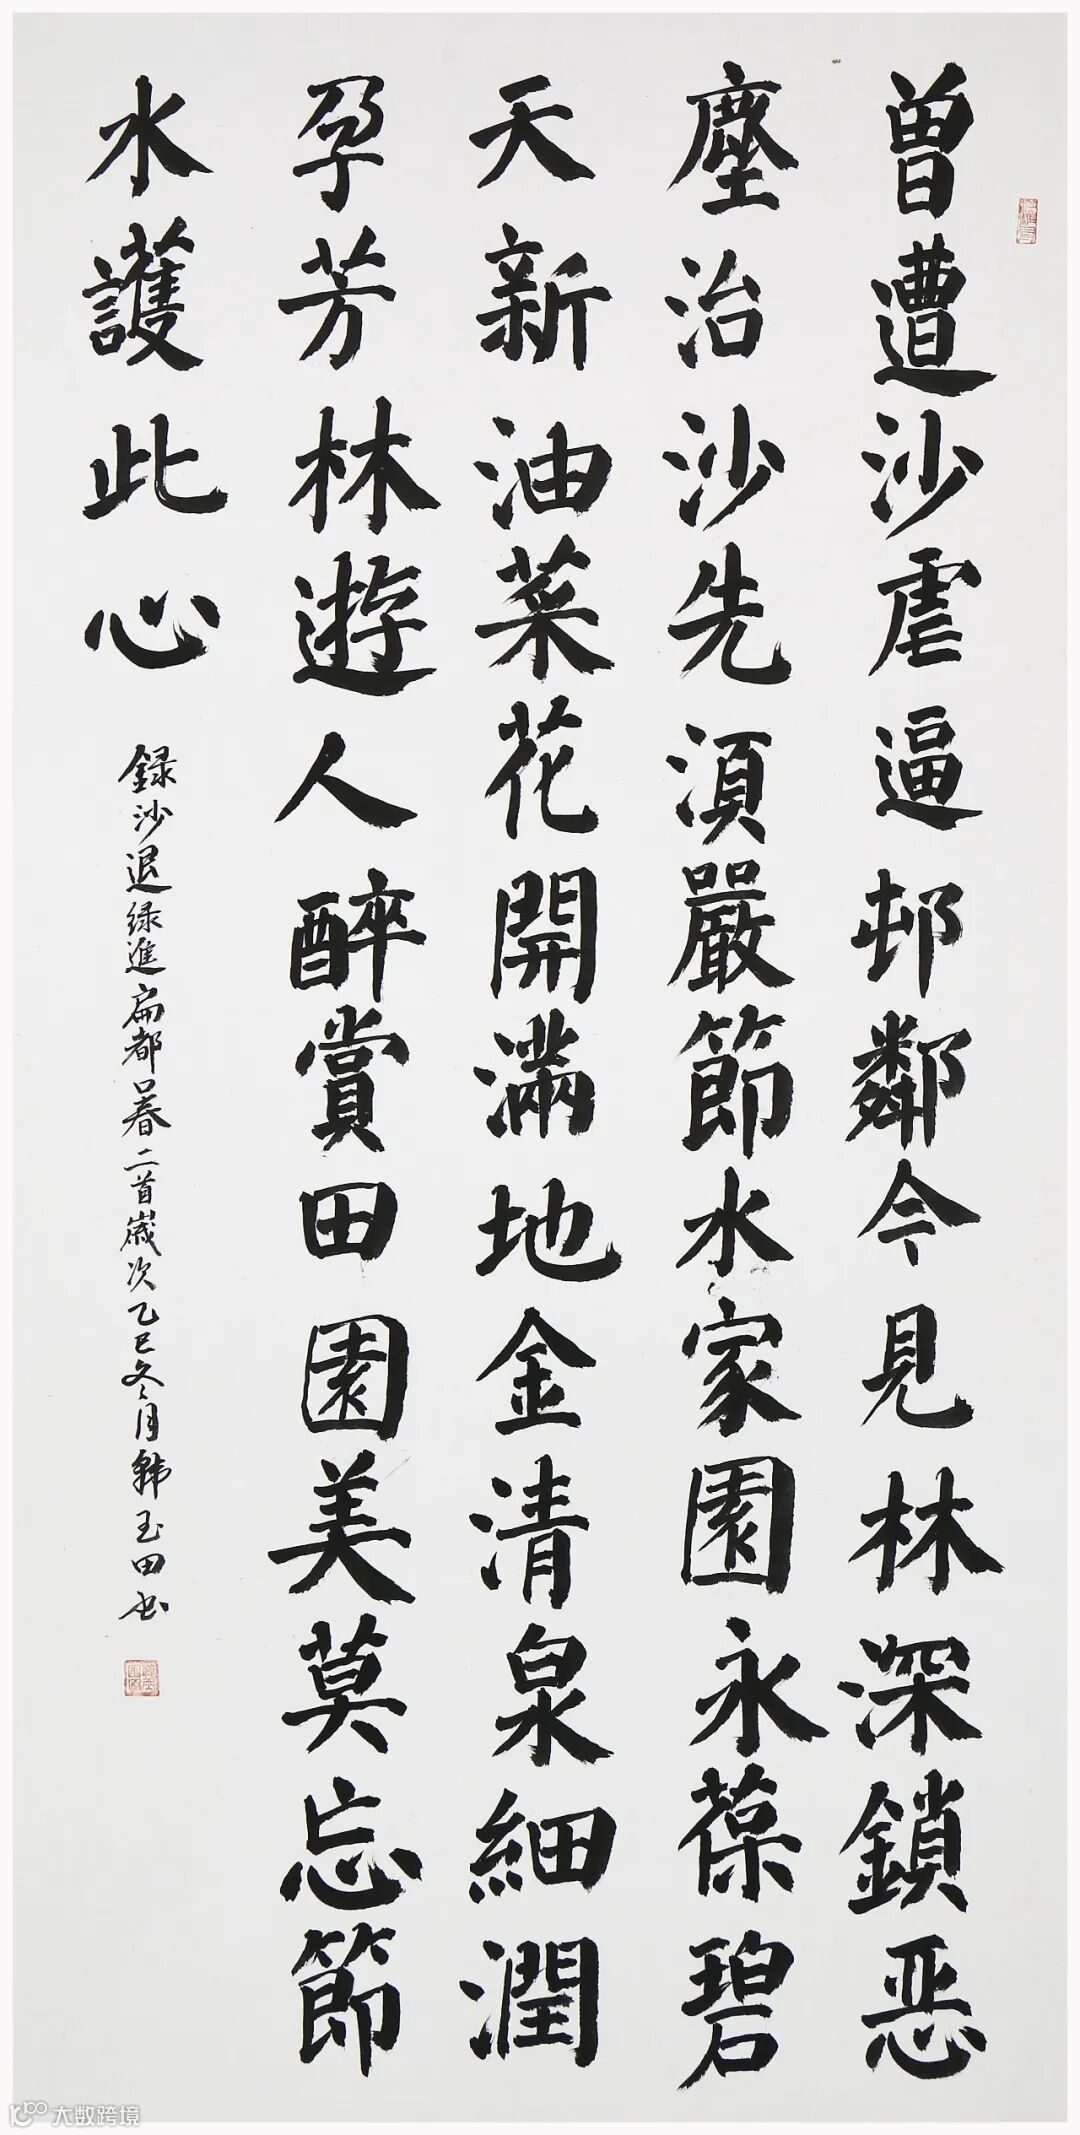 曾遭沙虐逼邨鄰今見林深鎖恶
塵治沙先湏嚴節水家園永葆碧
天新油菜花開滿地金清泉細潤
孕芳林遊人醉賞田園美莫忘節
水護此心
録沙退緑進扁都口春二首歲次乙巳冬月韓玉田书
大数跨境